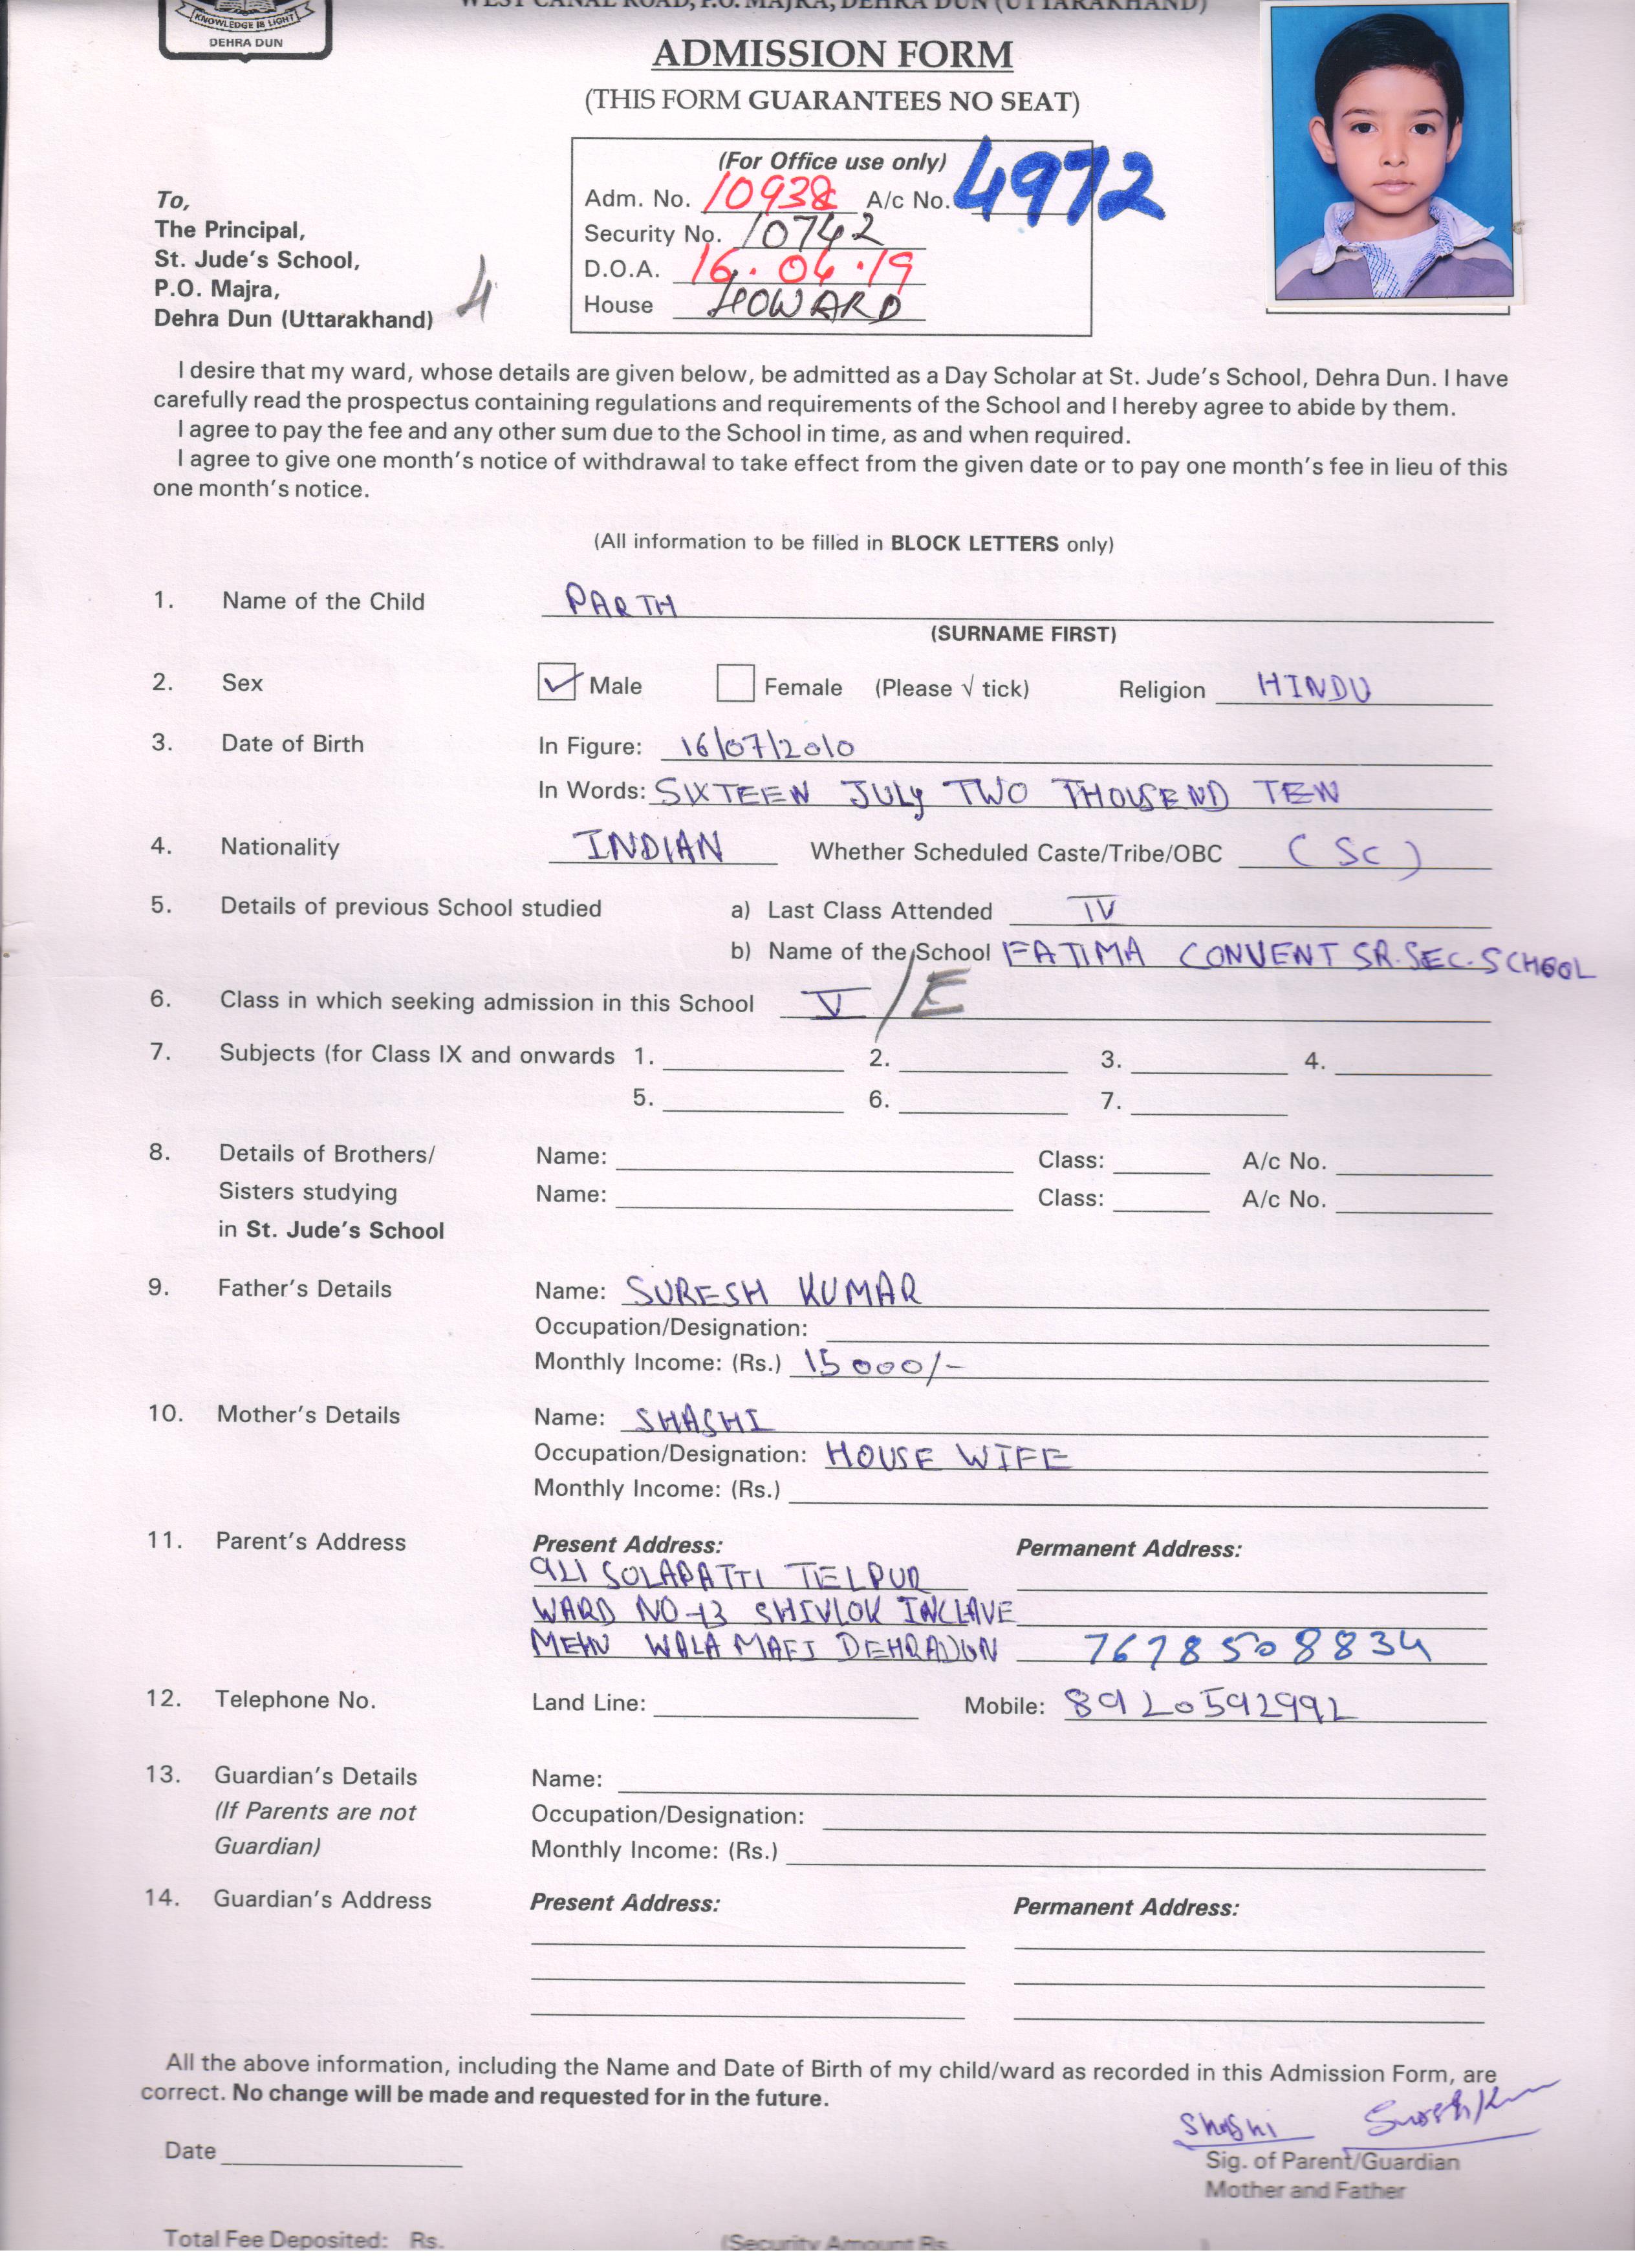 WEST CANAL ROAD, P.O. MAJRA, DEHRA DUN (UTTARAKHAND)
KNOWLEDGE IS LIGHT
DEHRA DUN
ADMISSION FORM
(THIS FORM GUARANTEES NO SEAT)
(For Office use only)
Adm. No. 10938 A/c No. 4972
Security No. 10742
D.O.A. 16.04.19
House HOWARD
To,
The Principal,
St. Jude's School,
P.O. Majra,
Dehra Dun (Uttarakhand)
4
I desire that my ward, whose details are given below, be admitted as a Day Scholar at St. Jude's School, Dehra Dun. I have
carefully read the prospectus containing regulations and requirements of the School and I hereby agree to abide by them.
I agree to pay the fee and any other sum due to the School in time, as and when required.
I agree to give one month's notice of withdrawal to take effect from the given date or to pay one month's fee in lieu of this
one month's notice.
(All information to be filled in BLOCK LETTERS only)
1. Name of the Child PARTH
(SURNAME FIRST)
2. Sex ✓ Male Female (Please √ tick) Religion HINDU
3. Date of Birth In Figure: 16/07/2010
In Words: SIXTEEN JULY TWO THOUSEND TEN
4. Nationality INDIAN Whether Scheduled Caste/Tribe/OBC (SC)
5. Details of previous School studied a) Last Class Attended IV
b) Name of the School FATIMA CONVENT SR.SEC.SCHOOL
6. Class in which seeking admission in this School V/E
7. Subjects (for Class IX and onwards 1. 2. 3. 4.
5. 6. 7.
8. Details of Brothers/ Name: Class: A/c No.
Sisters studying Name: Class: A/c No.
in St. Jude's School
9. Father's Details Name: SURESH KUMAR
Occupation/Designation:
Monthly Income: (Rs.) 15000/-
10. Mother's Details Name: SHASHI
Occupation/Designation: HOUSE WIFE
Monthly Income: (Rs.)
11. Parent's Address Present Address: Permanent Address:
TELPUR
WARD NO-13 SHIVLOK INCLAVE
MEHU WALA MAFI DEHRADUN 7678508834
12. Telephone No. Land Line: Mobile: 8920592992
13. Guardian's Details Name:
(If Parents are not Occupation/Designation:
Guardian) Monthly Income: (Rs.)
14. Guardian's Address Present Address: Permanent Address:
All the above information, including the Name and Date of Birth of my child/ward as recorded in this Admission Form, are
correct. No change will be made and requested for in the future.
Shashi
Date
Sig. of Parent/Guardian
Mother and Father
Total Fee Deposited: Rs. (Security Amount Rs. )